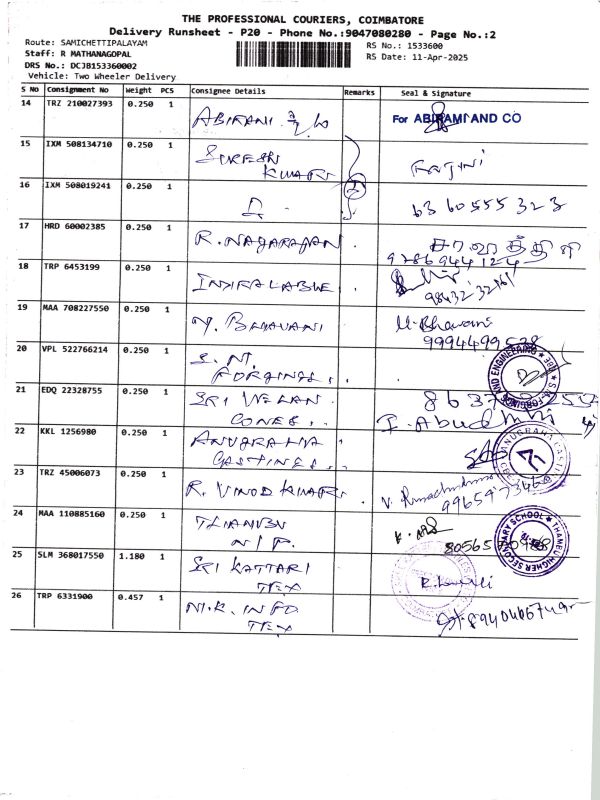 THE PROFESSIONAL COURIERS, COIMBATORE
Delivery Runsheet - P20 - Phone No.:9047080280 - Page No.:2
Route: SAMICHETTIPALAYAM
Staff: R MATHANAGOPAL
DRS No.: DCJB153360002
Vehicle: Two Wheeler Delivery
RS No.: 1533600
RS Date: 11-Apr-2025
S No Consignment No Weight PCS Consignee Details Remarks Seal & Signature
14 TRZ 210027393 0.250 1 ABIRAMI & Co For ABIRAMI AND CO
15 IXM 508134710 0.250 1 SURESH
KUMAR
16 IXM 508019241 0.250 1 2 6360555323
17 HRD 60002385 0.250 1 R. NAGARAJAN
9786944124
18 TRP 6453199 0.250 1
19 MAA 708227550 0.250 1 M. BHAVANI M. Bhavani
9994499528
20 VPL 522766214 0.250 1 S. M.
FORGINGS
21 EDQ 22328755 0.250 1 SRI VELAN
CONES
22 KKL 1256980 0.250 1 ANUGRAHA
CASTINGS
23 TRZ 45006073 0.250 1 R. VINOD KUMAR
24 MAA 110885160 0.250 1
25 SLM 368017550 1.180 1 SRI
TEX
26 TRP 6331900 0.457 1 N.K. INFO
TEX